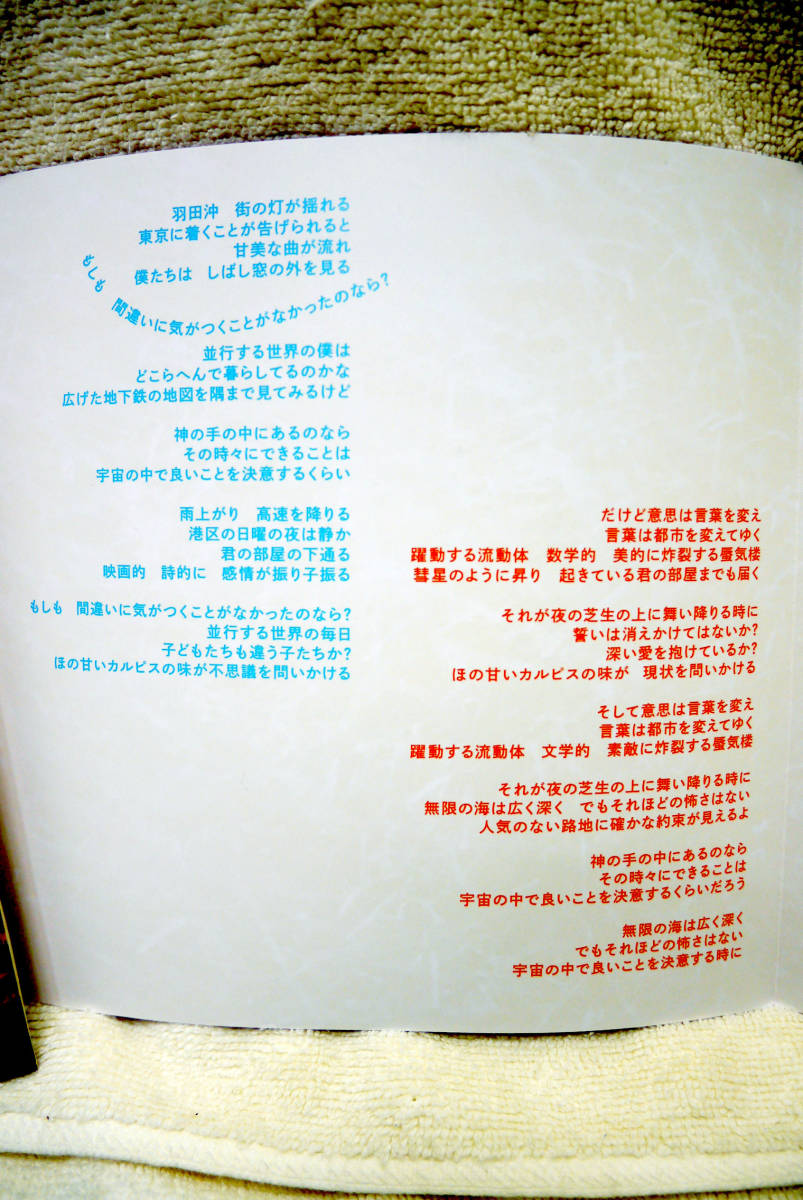 羽田沖　街の灯が揺れる
東京に着くことが告げられると
甘美な曲が流れ
僕たちは　しばし窓の外を見る
もしも　間違いに気がつくことがなかったのなら？
並行する世界の僕は
どこらへんで暮らしてるのかな
広げた地下鉄の地図を隅まで見てみるけど
神の手の中にあるのなら
その時々にできることは
宇宙の中で良いことを決意するくらい
雨上がり　高速を降りる
港区の日曜の夜は静か
君の部屋の下通る
映画的　詩的に　感情が振り子振る
もしも　間違いに気がつくことがなかったのなら？
並行する世界の毎日
子どもたちも違う子たちか？
ほの甘いカルピスの味が不思議を問いかける
だけど意思は言葉を変え
言葉は都市を変えてゆく
躍動する流動体　数学的　美的に炸裂する蜃気楼
彗星のように昇り　起きている君の部屋までも届く
それが夜の芝生の上に舞い降りる時に
誓いは消えかけてはないか？
深い愛を抱けているか？
ほの甘いカルピスの味が　現状を問いかける
そして意思は言葉を変え
言葉は都市を変えてゆく
躍動する流動体　文学的　素敵に炸裂する蜃気楼
それが夜の芝生の上に舞い降りる時に
無限の海は広く深く　でもそれほどの怖さはない
人気のない路地に確かな約束が見えるよ
神の手の中にあるのなら
その時々にできることは
宇宙の中で良いことを決意するくらいだろう
無限の海は広く深く
でもそれほどの怖さはない
宇宙の中で良いことを決意する時に